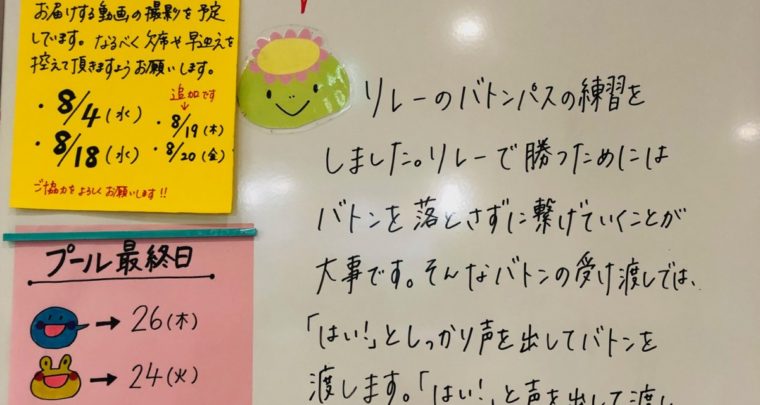 お届けする動画の撮影を予定
しています。なるべく欠席や早迎えを
控えて頂きますようお願いします。
・8/4(水)
追加です
・8/19(木)
・8/18(水)
・8/20(金)
ご協力をよろしくお願いします!!
プール最終日
→26(木)
→24(火)
リレーのバトンパスの練習を
しました。リレーで勝つためには
バトンを落とさずに繋げていくことが
大事です。そんなバトンの受け渡しでは、
「はい!」としっかり声を出してバトンを
渡します。「はい!」と声を出して渡し